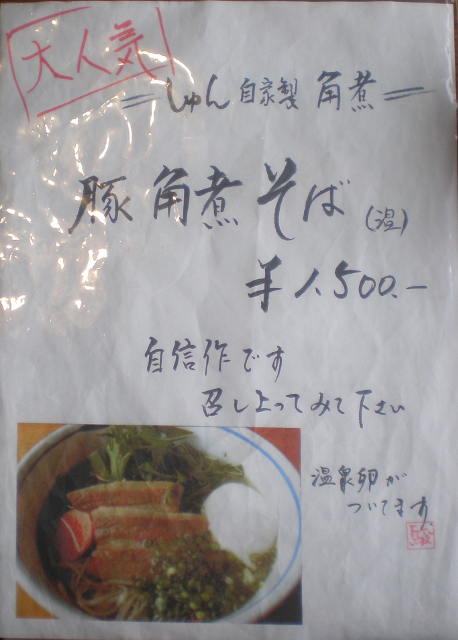 大人気
しゅん自家製 角煮
豚角煮そば(温)
¥1,500.-
自信作です
召し上ってみて下さい
温泉卵が
ついてます